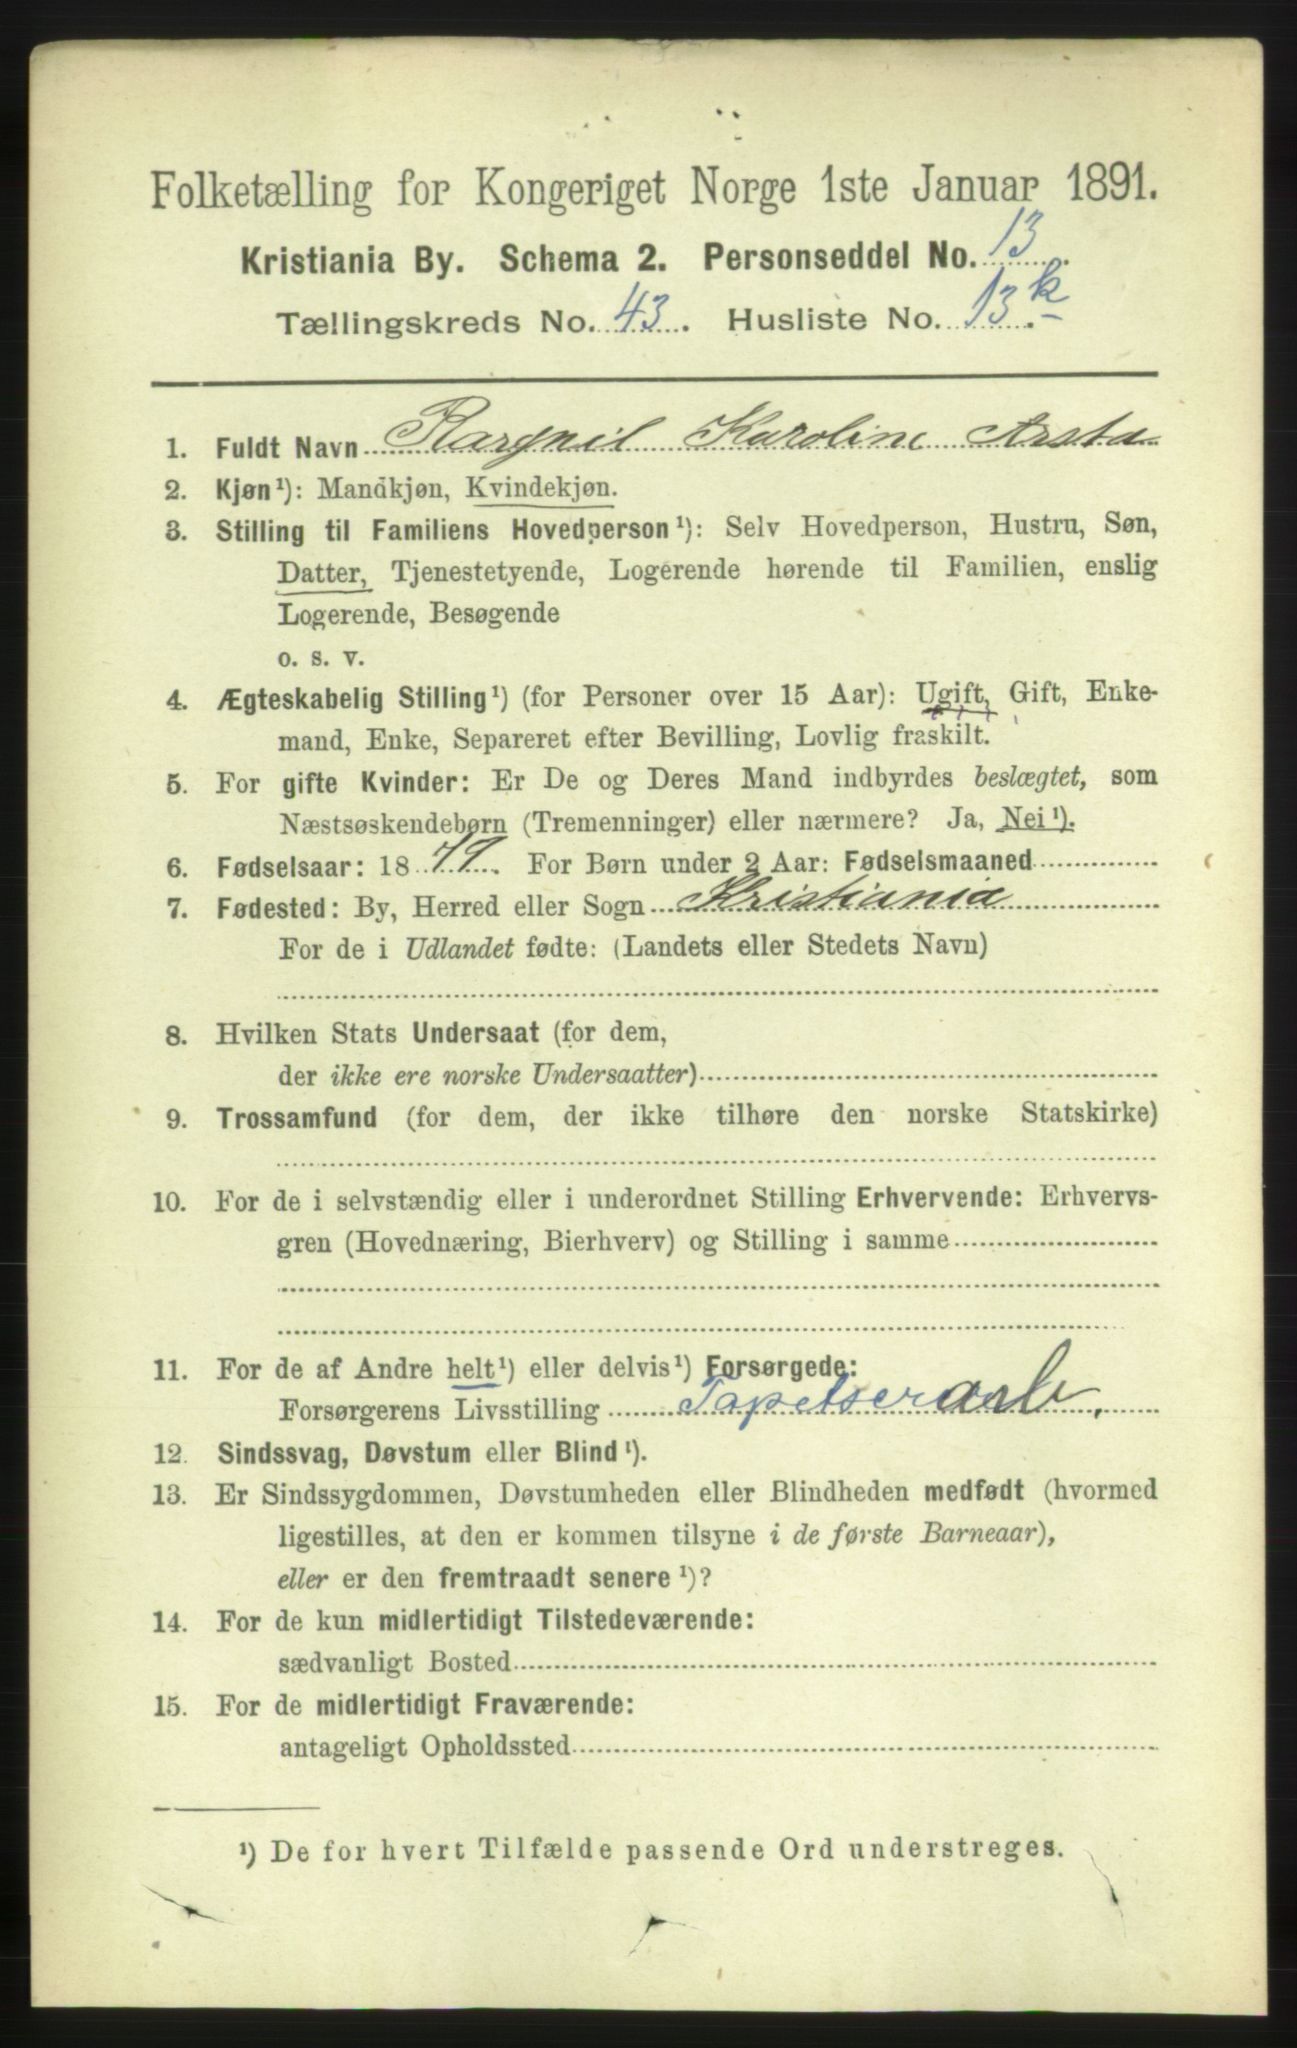 Folketælling for Kongeriget Norge 1ste Januar 1891.
Kristiania By. Schema 2. Personseddel No. 13.
Tællingskreds No. 43. Husliste No. 13 k.
1. Fuldt Navn Ragnil Karoline Arsta
2. Kjøn¹): Mandkjøn, Kvindekjøn.
3. Stilling til Familiens Hovedperson¹): Selv Hovedperson, Hustru, Søn,
Datter, Tjenestetyende, Logerende hørende til Familien, enslig
Logerende, Besøgende
o. s. v.
4. Ægteskabelig Stilling¹) (for Personer over 15 Aar): Ugift, Gift, Enke-
mand, Enke, Separeret efter Bevilling, Lovlig fraskilt.
5. For gifte Kvinder: Er De og Deres Mand indbyrdes beslægtet, som
Næstsøskendebørn (Tremenninger) eller nærmere? Ja, Nei¹).
6. Fødselsaar: 1879. For Børn under 2 Aar: Fødselsmaaned
7. Fødested: By, Herred eller Sogn Kristiania
For de i Udlandet fødte: (Landets eller Stedets Navn)
8. Hvilken Stats Undersaat (for dem,
der ikke ere norske Undersaatter)
9. Trossamfund (for dem, der ikke tilhøre den norske Statskirke)
10. For de i selvstændig eller i underordnet Stilling Erhvervende: Erhvervs-
gren (Hovednæring, Bierhverv) og Stilling i samme
11. For de af Andre helt¹) eller delvis¹) Forsørgede:
Forsørgerens Livsstilling Tapetserarb.
12. Sindssvag, Døvstum eller Blind¹).
13. Er Sindssygdommen, Døvstumheden eller Blindheden medfødt (hvormed
ligestilles, at den er kommen tilsyne i de første Barneaar),
eller er den fremtraadt senere¹)?
14. For de kun midlertidigt Tilstedeværende:
sædvanligt Bosted
15. For de midlertidigt Fraværende:
antageligt Opholdssted
¹) De for hvert Tilfælde passende Ord understreges.